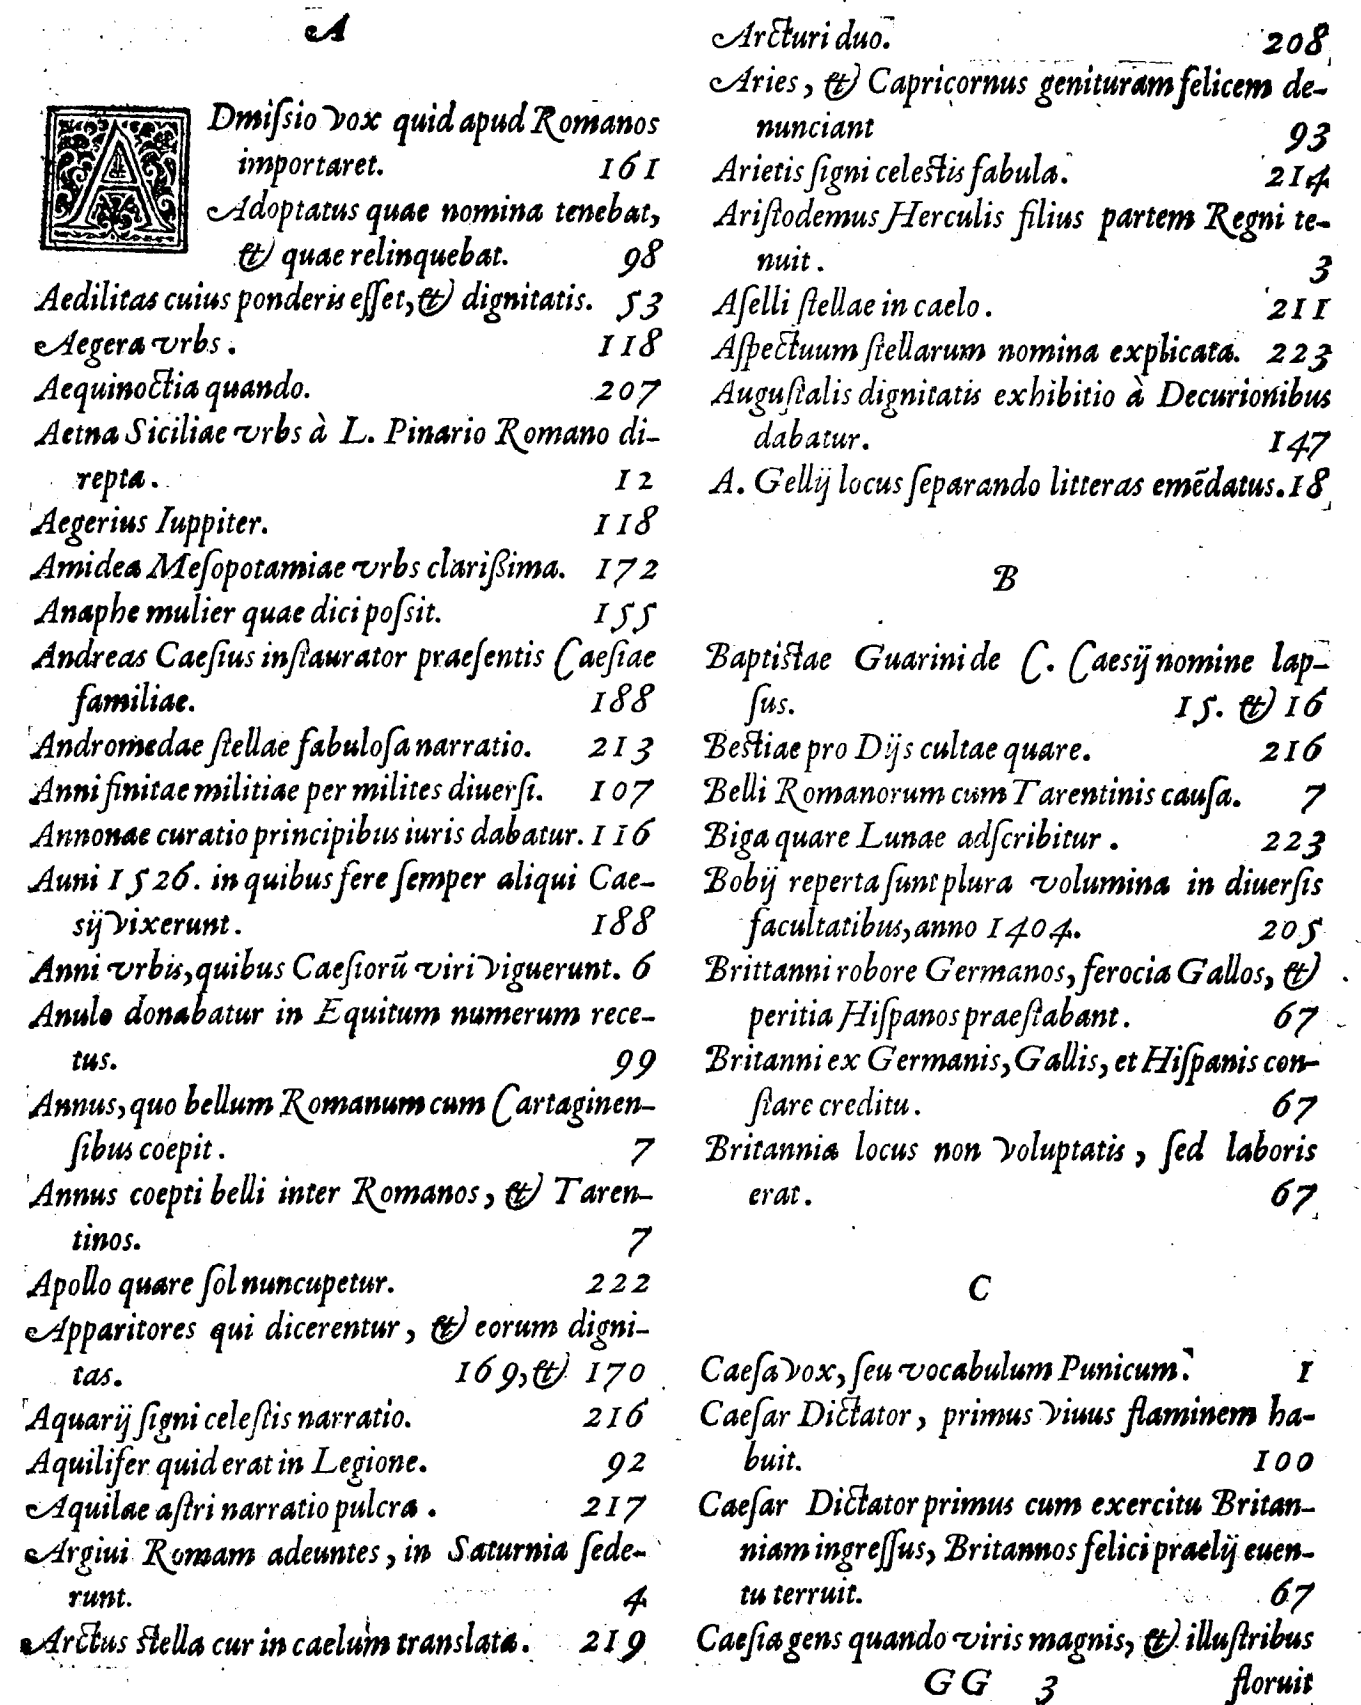 A
ADmiſsio vox quid apud Romanos
importaret. 161
Adoptatus quae nomina tenebat,
& quae relinquebat. 98
Aedilitas cuius ponderis eſſet, & dignitatis. 53
Aegera vrbs. 118
Aequinoctia quando. 207
Aetna Siciliae vrbs à L. Pinario Romano di-
repta. 12
Aegerius Iuppiter. 118
Amidea Meſopotamiae vrbs clarißima. 172
Anaphe mulier quae dici poſsit. 155
Andreas Caeſius inſtaurator praeſentis Caeſiae
familiae. 188
Andromedae ſtellae fabuloſa narratio. 213
Anni finitae militiae per milites diuerſi. 107
Annonae curatio principibus iuris dabatur. 116
Auni 1526. in quibus fere ſemper aliqui Cae-
sij vixerunt. 188
Anni vrbis, quibus Caeſiorũ viri viguerunt. 6
Anulo donabatur in Equitum numerum rece-
tus. 99
Annus, quo bellum Romanum cum Cartaginen-
ſibus coepit. 7
Annus coepti belli inter Romanos, & Taren-
tinos. 7
Apollo quare ſol nuncupetur. 222
Apparitores qui dicerentur, & eorum digni-
tas. 169, & 170
Aquarij ſigni celeſtis narratio. 216
Aquilifer quid erat in Legione. 92
Aquilae aſtri narratio pulcra. 217
Argiui Romam adeuntes, in Saturnia ſede-
runt. 4
Arctus ſtella cur in caelum translata. 219
Arcturi duo. 208
Aries, & Capricornus genituram felicem de-
nunciant 93
Arietis ſigni celeſtis fabula. 214
Ariſtodemus Herculis filius partem Regni te-
nuit. 3
Aſelli ſtellae in caelo. 211
Aſpectuum ſtellarum nomina explicata. 223
Auguſtalis dignitatis exhibitio à Decurionibus
dabatur. 147
A. Gellij locus ſeparando litteras emẽdatus. 18
B
Baptiſtae Guarini de C. Caesij nomine lap-
ſus. 15. & 16
Beſtiae pro Dijs cultae quare. 216
Belli Romanorum cum Tarentinis cauſa. 7
Biga quare Lunae adſcribitur. 223
Bobij reperta ſunt plura volumina in diuerſis
facultatibus, anno 1404. 205
Brittanni robore Germanos, ferocia Gallos, &
peritia Hiſpanos praeſtabant. 67
Britanni ex Germanis, Gallis, et Hiſpanis con-
ſtare creditu. 67
Britannia locus non voluptatis, ſed laboris
erat. 67
C
Caeſa vox, ſeu vocabulum Punicum. 1
Caeſar Dictator, primus viuus flaminem ha-
buit. 100
Caeſar Dictator primus cum exercitu Britan-
niam ingreſſus, Britannos felici praelij euen-
tu terruit. 67
Caeſia gens quando viris magnis, & illuſtribus
GG 3 floruit